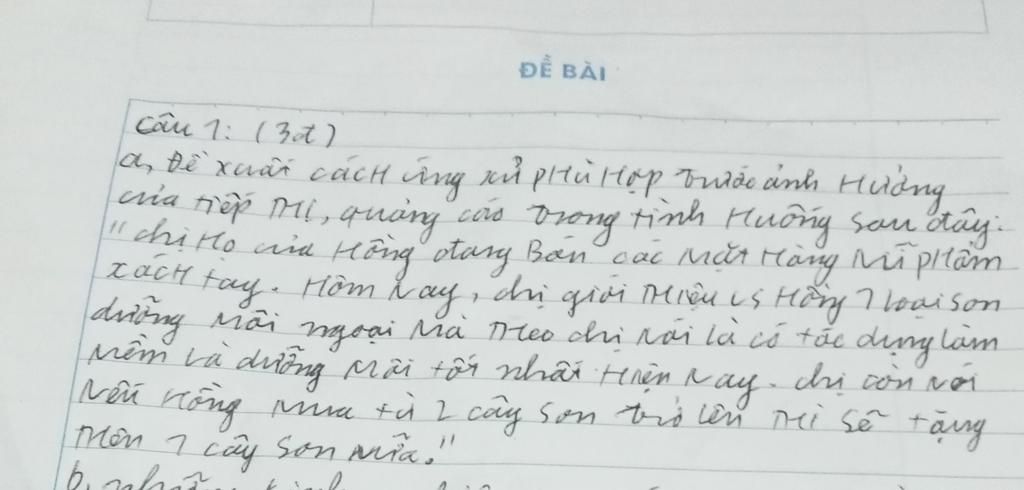 ĐỀ BÀI
Câu 1: (3đ)
a, Đề xuất cách ứng xử phù hợp trước ảnh hưởng
của tiếp thị, quảng cáo trong tình huống sau đây:
"chị họ của Hồng đang bán các mặt hàng mĩ phẩm
xách tay. Hôm nay, chị giới thiệu vs Hồng 1 loại son
dưỡng môi ngoại mà theo chị nói là có tác dụng làm
mềm và dưỡng môi tốt nhất hiện nay. chị còn nói
nếu Hồng mua từ 2 cây son trở lên thì sẽ tặng
thêm 1 cây son nữa."
b, những